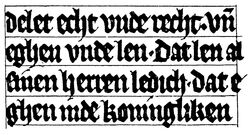 delet echt vnde recht. vn̄
eghen vnde len. Dat len al
sinen herren ledich. dat e
ghen inde koningliken